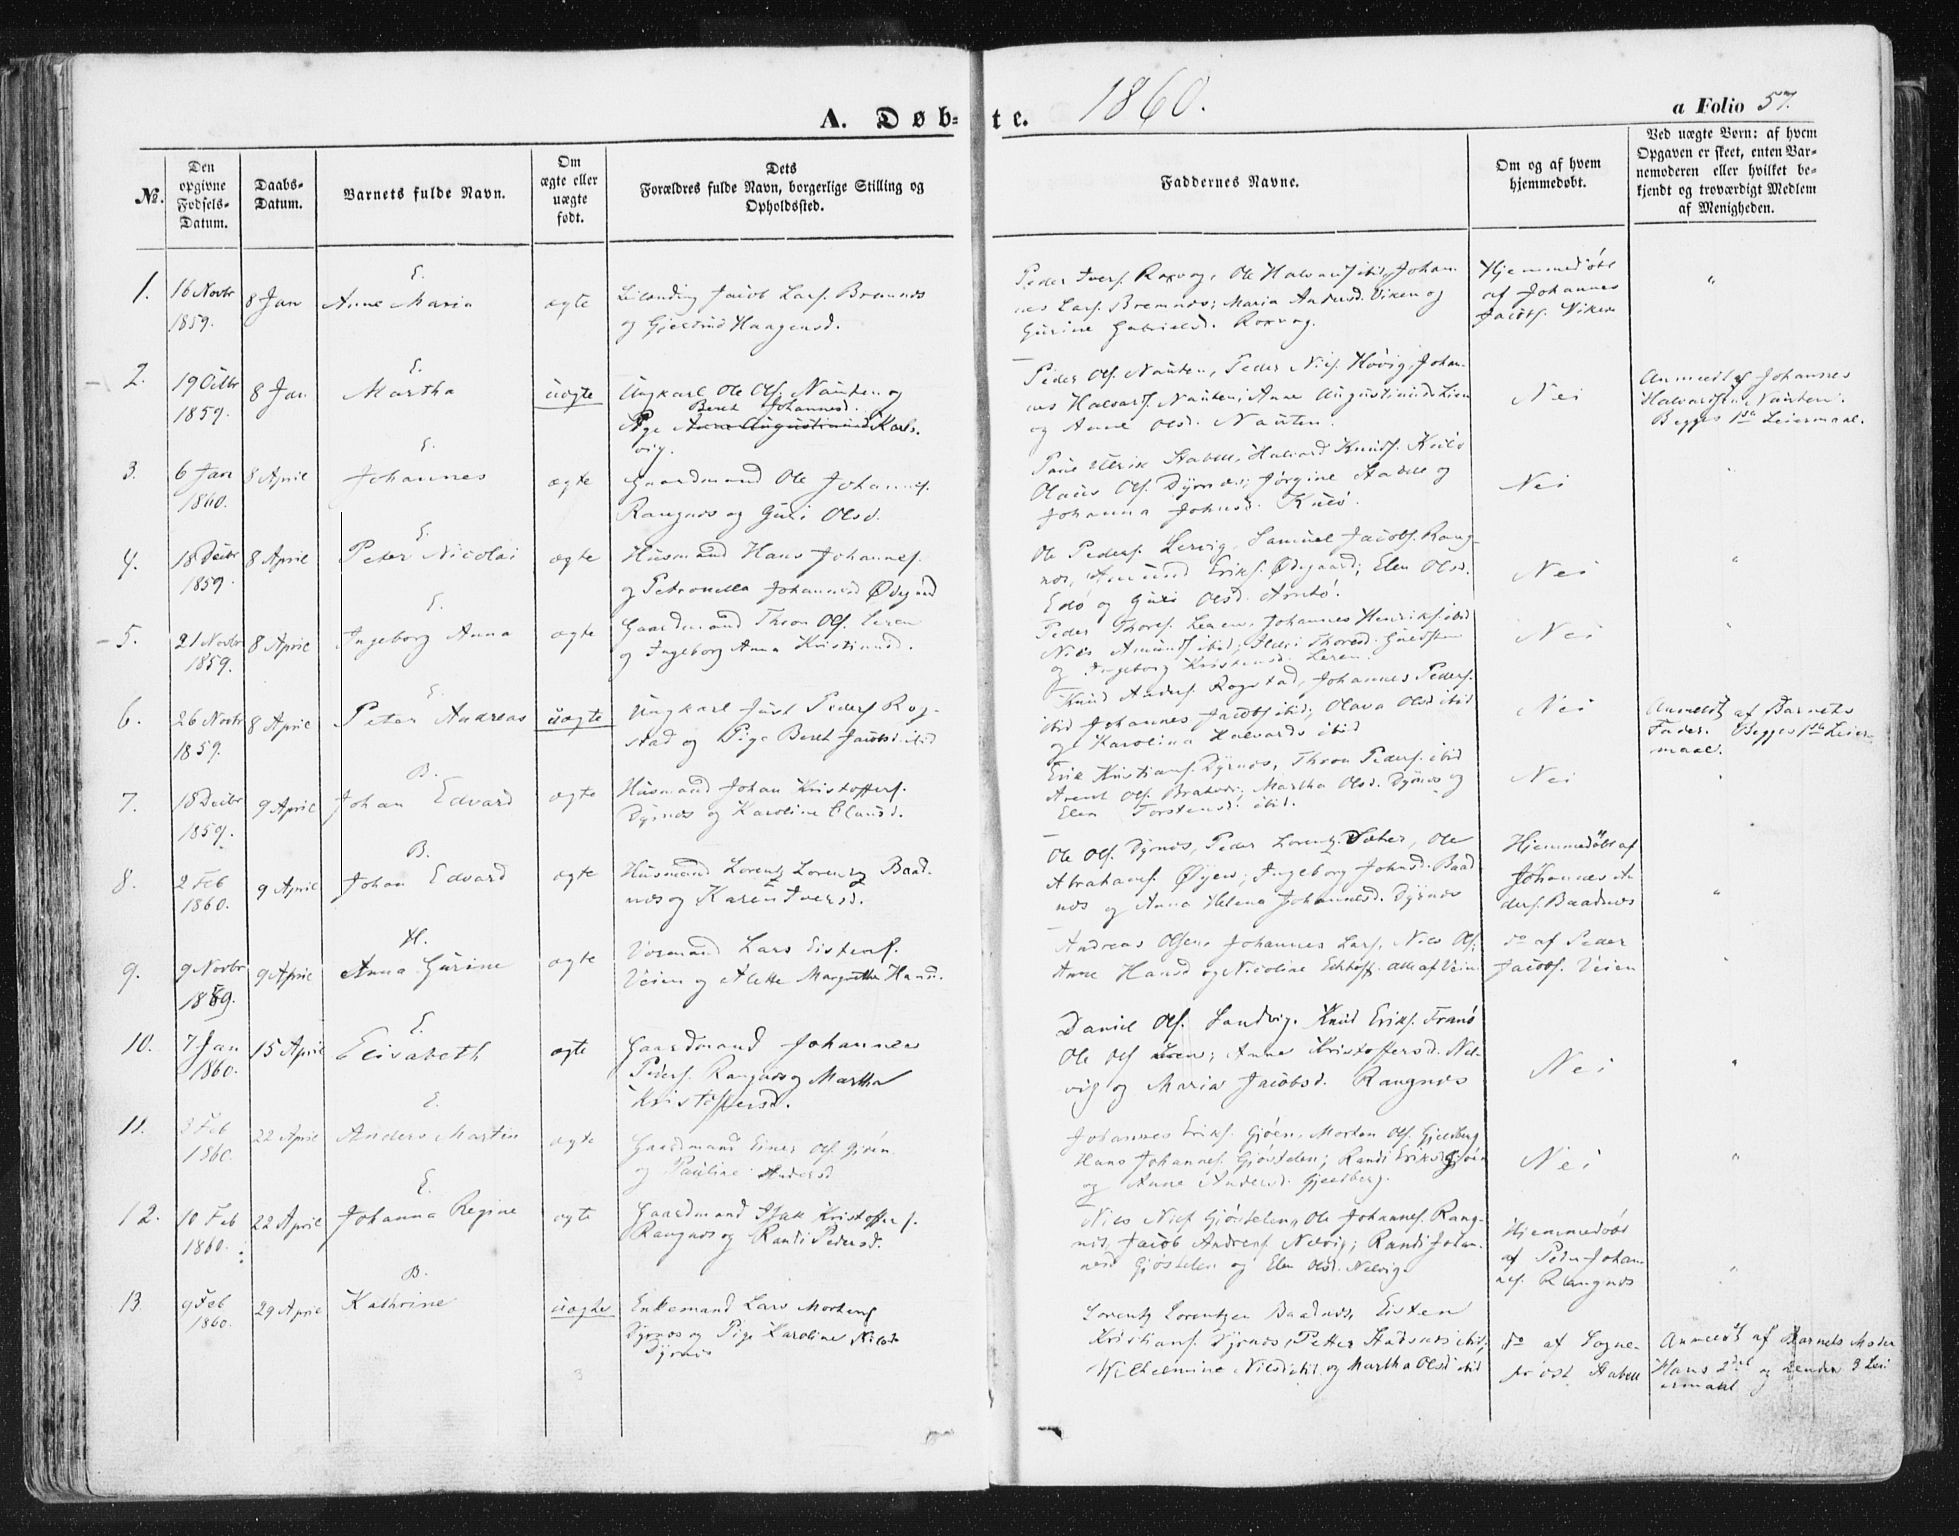 1860.
A. Døb-te.
a Folio 57.
№.
Den opgivne Fødsels-Datum.
Daabs-Datum.
Barnets fulde Navn.
Om ægte eller uægte født.
Dets Forældres fulde Navn, borgerlige Stilling og Opholdssted.
Faddernes Navne.
Om og af hvem hjemmedøbt.
Ved uægte Børn: af hvem Opgaven er skeet, enten Bar-nemoderen eller hvilket be-kjendt og troværdigt Medlem af Menigheden.
E.
1. 16 Novbr 1859. 8 Jan Anne Maria ægte
Jacob Lars. Bremnæs
og Gjertrud Haagensd.
Peder Ivers. Roxvog, Ole Halvors. ibid, Johan-
nes Lars. Bremnæs; Maria Andersd. Viken og
Gurine Gabrielsd. Roxvog.
Hjemmedøbt
af Johannes
Jacobs. Viken
"
E.
2. 19 Octbr 1859. 8 Jan Martha uægte
Ungkarl Ole Ols. Nauten og
Beret Johannesd.
Pige Anne Augustinusd Karls-
vig.
Peder Ols. Nauten, Peder Niels. Høvig, Johan-
nes Halvars. Nauten; Anne Augustinusd. Lien
og Anne Olsd. Nauten.
Nei
Anmeldt af Johannes
Halvarsen Nauten.
Begges 1ste Leiermaal.
E.
3. 6 Jan 1860. 8 April Johannes ægte
Gaardmand Ole Johannes.
Rangnæs og Guri Olsd.
Paul Ulrik Stabell, Halvard Knuds. Kulø
Olaus Ols. Dyrnæs; Jørgine Stabell og
Johanna Johnsd. Kulø.
Nei
"
E.
4. 18 Decbr 1859. 8 April Peter Nicolai ægte
Husmand Hans Johannes.
og Petronella Johannesd Ødegaard
Ole Peders. Lervig, Samuel Jacobs. Rang-
næs, Amund Eriks. Ødegaard; Elen Olsd.
Edø og Guri Olsd. Arntø.
Nei
"
E.
5. 21 Novbr 1859. 8 April Ingeborg Anna ægte
Gaardmand Thron Ols. Leren
og Ingeborg Anna Kristiansd.
Peder Thores. Leren, Johannes Henriks. ibid
Nils Amunds. ibid; Ildri Thoresd.
og Ingeborg Kristensd. Leren.
Nei
"
E.
6. 26 Novbr 1859. 8 April Peter Andreas uægte
Ungkarl Just Peders. Rog-
stad og Pige Beret Jacobsd. ibid
Knud Anders. Rogstad, Johannes Peders.
ibid Johannes Jacobs. ibid; Olava Olsd ibid
og Karolina Halvards ibid
Nei
Anmeldt af Barnets
Fader. Begges 1ste Leier-
maal.
B.
7. 18 Decbr 1859. 9 April Johan Edvard ægte
Husmand Johan Kristoffers.
Dyrnæs og Karoline Clausd.
Erik Kristians. Dyrnæs, Thron Peders. ibid
Arent Ols. Bratvær; Martha Olsd. Dyrnæs og
Elen Torstensd. ibid.
Nei
"
B.
8. 2 Feb 1860. 9 April Johan Edvard ægte
Husmand Lorentz Lorentz. Baad-
næs og Karen Iversd.
Ole Ols. Dyrnæs, Peder Lorentz. Sæter, Ole
Abrahams. Øyen; Ingeborg Johnsd. Baad-
næs og Anna Helena Johannesd. Dyrnæs
Hjemmedøbt af
Johannes An-
ders. Baadnæs
"
H.
9. 9 Novbr 1859. 9 April Anna Gurine ægte
Lars Eistens.
Veien og Alette Margrethe Hansd.
Andreas Olsen, Johannes Lars, Nils Ols.
Anne Hansd og Nicoline Eckhoff. alle af Veien
do af Peder
Jacobs. Veien
"
E.
10. 7 Jan 1860. 15 April Elisabeth ægte
Gaardmand Johannes
Peders. Rangnæs og Martha
Kristoffersd.
Daniel Ols. Sandvig, Knud Eriks.
Ole Ols Leren; Anne Kristoffersd. Nel-
vig og Maria Jacobsd. Rangnæs
Nei
"
E.
11. 3 Feb 1860. 22 April Anders Martin ægte
Gaardmand Einer Ols. Gjøen
og Pauline Andersd
Johannes Eriks. Gjøen, Morten Ols. Gjelberg
Hans Johannes. Gjøstelen; Randi Eriksd Gjøen
og Anne Andersd. Gjelberg.
Nei
"
E.
12. 10 Feb 1860. 22 April Johanna Regine ægte
Gaardmand Isak Kristoffers.
Rangnæs og Randi Pedersd.
Nils Niels Gjøstelen, Ole Johannes. Rang-
næs, Jacob Andres. Nelvig; Randi Johan-
nesd Gjøstelen og Elen Olsd. Nelvig
Hjemmedøbt
af Peder Johan-
nes. Rangnæs
"
B.
13. 9 Feb 1860. 29 April Kathrine uægte
Enkemand Lars Mortens
Dyrnæs og Pige Karoline Nilsd
Dyrnæs
3
Lorentz Lorentzen Baadnæs, Eisten
Kristians. Dyrnæs, Petter ibid;
Wilhelmine Nilsd ibid. og Martha Olsd ibid
do af Sogne-
prost Stabell
Anmeldt af Barnets Moder
Hans 2det og hendes 3 Lei-
ermaal